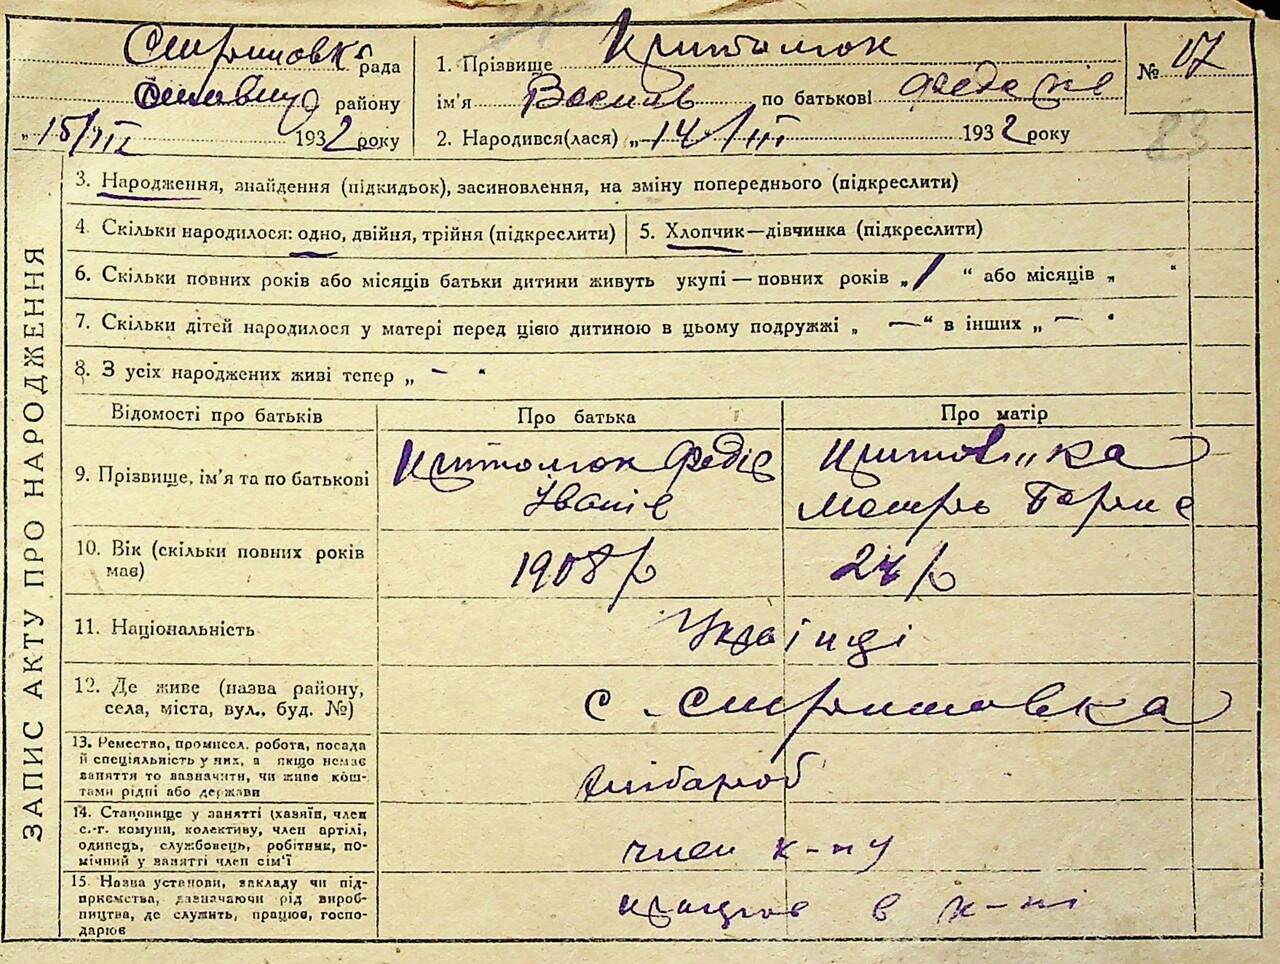 рада
1. Прізвище
№ 17
району
ім'я Василь по батькові
„15/VII 1932 року
2. Народився(лася) „14/III 1932 року
23
ЗАПИС АКТУ ПРО НАРОДЖЕННЯ
3. Народження, знайдення (підкидьок), засиновлення, на зміну попереднього (підкреслити)
4. Скільки народилося: одно, двійня, трійня (підкреслити)
5. Хлопчик—дівчинка (підкреслити)
6. Скільки повних років або місяців батьки дитини живуть укупі — повних років „1“ або місяців „ “
7. Скільки дітей народилося у матері перед цією дитиною в цьому подружжі „ — “ в інших „ — “
8. З усіх народжених живі тепер „ — “
Відомості про батьків
Про батька
Про матір
9. Прізвище, ім'я та по батькові
Федів
Іванів
10. Вік (скільки повних років має)
1908 р
24 р
11. Національність
Українці
12. Де живе (назва району,
села, міста, вул., буд. №)
с.
13. Ремество, промисел, робота, посада
й спеціяльність у них, а якщо немає
заняття то зазначити, чи живе кош-
тами рідні або держави
хлібароб
14. Становище у занятті (хазяїн, член
с.-г. комуни, колективу, член артілі,
одинець, службовець, робітник, по-
мічний у занятті член сім'ї
член к-пу
15. Назва установи, закладу чи під-
приємства, зазначаючи рід вироб-
ництва, де служить, працює, госпо-
дарює
працює в к-пі